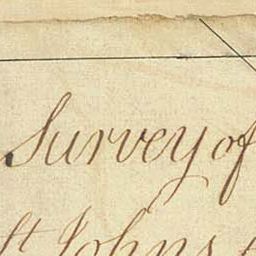 Survey of
St Johns